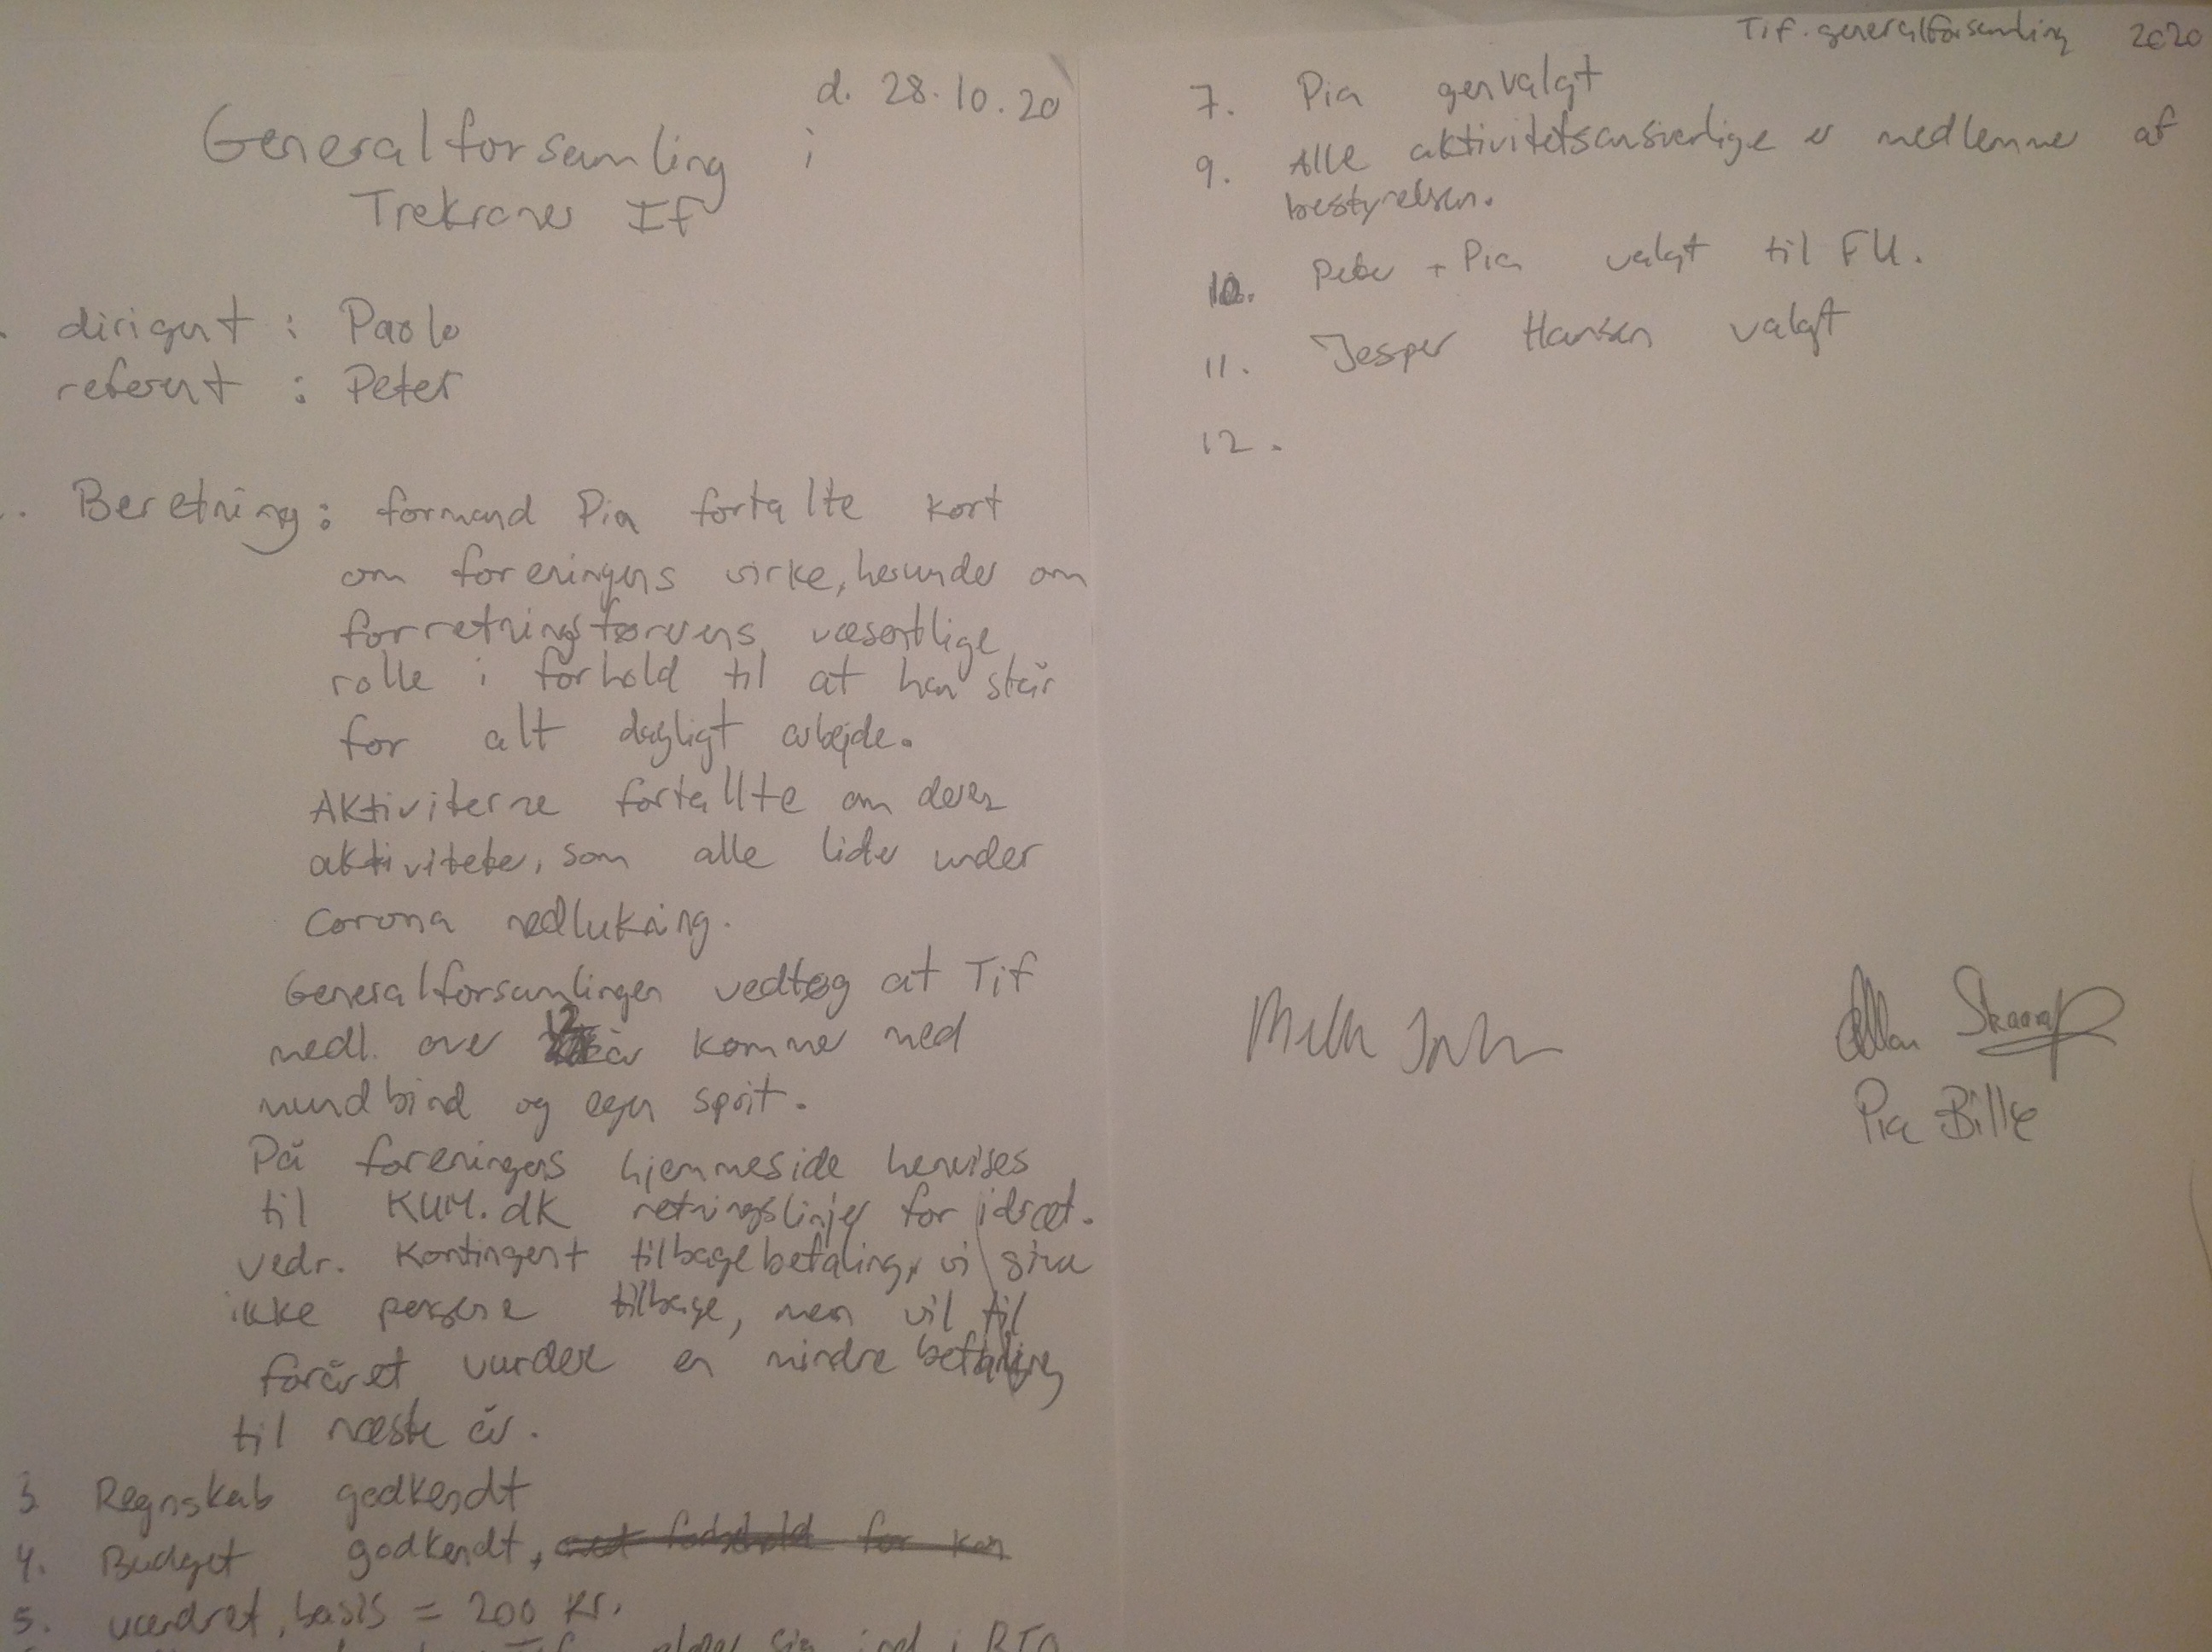 d. 28.10.20
Generalforsamling i
Trekroner If
dirigent : Paolo
referent : Peter
. Beretning: formand Pia fortalte kort
om foreningens virke, herunder om
forretningsførerens væsentlige
rolle i forhold til at han står
for alt dagligt arbejde.
Aktiviterne fortallte om deres
aktiviteter, som alle lider under
Corona nedlukning.
Generalforsamlingen vedtog at Tif
medl. over 12 år kommer med
mundbind og egen sprit.
På foreningens hjemmeside henvises
til KUM.dk retningslinjer for idræt.
vedr. Kontingent tilbagebetaling, vi giver
ikke pengene tilbage, men vil til
foråret vurdere en mindre betaling
til næste år.
3 Regnskab godkendt
4. Budget godkendt,
5. uændret, basis = 200 kr.
sig ind i
Tif. generalforsamling 2020
7. Pia genvalgt
9. Alle aktivitetsansvarlige er medlemmer af
bestyrelsen.
10. Peter + Pia valgt til FU.
11. Jesper Hansen valgt
12.
Allan
Pia Bille